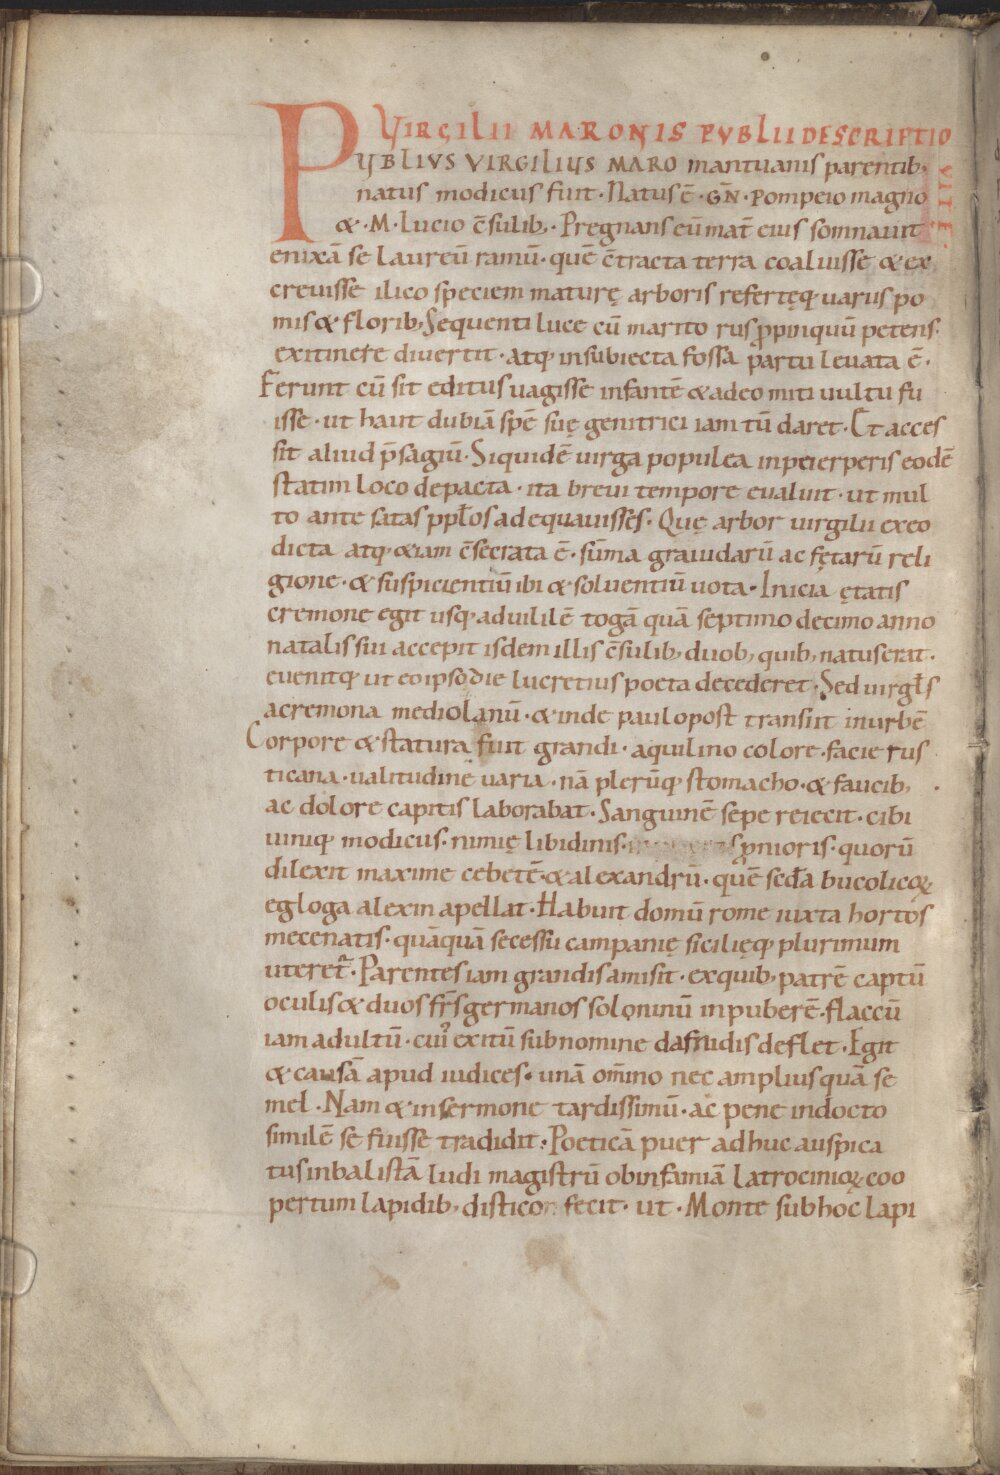 VIRGILII MARONIS PVBLII DESCRIPTIO
VITE.
PVBLIVS VIRGILIVS MARO mantuanis parentib;
natus modicus fuit · Natus ē · GN̄ · Pompeio magno
& · M · Lucio c̄sulib; · Pregnans eū mat̄ eius somnauit
enixā se laureū ramū · quē c̄tracta terra coaluisse & ex
creuisse ilico speciem maturę arboris refertęq; uariis po
mis & florib; Sequenti luce cū marito rus ꝓpinquū petens
ex itinere diuertit · atq; in subiecta fossa partu leuata ē ·
Ferunt cū sit editus uagisse infantē & adeo miti uultu fu
isse · ut haut dubiā spē suę genitrici iam tū daret · Et acces
sit aliud p̄sagiū · Siquidē uirga populea inpeierperis eodē
statim loco depacta · ita breui tempore eualuit · ut mul
to ante satas ppl̄os adequauisses · Quę arbor uirgilii ex eo
dicta atq; &iam c̄secrata ē · sūma grauidarū ac fętarū reli
gione · & suspicientiū ibi & soluentiū uota · Inicia ętatis
cremone egit usq; ad uililē togā quā septimo decimo anno
natalis sui accepit isdem illis c̄sulib; duob; quib; natus erat ·
euenitq; ut eo ipso die lucretius poeta decederet · Sed uirgl̄s
a cremona mediolanū · & inde paulo post transiit in urbē
Corpore & statura fuit grandi · aquilino colore · facie rus
ticana · ualitudine uaria · nā plerūq; stomacho · & faucib;
ac dolore capitis laborabat · Sanguinē sepe reiecit · cibi
uiniq; modicus · nimię libidinis · ꝓnioris · quorū
dilexit maxime cebetē · & alexandrū · quē sed̄a bucolicoꝝ
egloga alexin apellat · Habuit domū rome iuxta hortos
mecenatis · quāquā secessu campanię sicilięq; plurimum
uteret᷑ · Parentes iam grandis amisit · ex quib; patrē captū
oculis & duos fr̄s germanos soloninū inpuberē · flaccū
iam adultū · cui᷒ exitū sub nomine dafnidis deflet · Egit
& causā apud iudices · unā om̄ino nec amplius quā se
mel · Nam & in sermone tardissimū · ac pene indocto
similē se fuisse tradidit · Poeticā puer adhuc auspica
tus in balistā ludi magistrū ob infamiā latrocinioꝝ coo
pertum lapidib; disticon fecit · ut · Monte sub hoc lapi